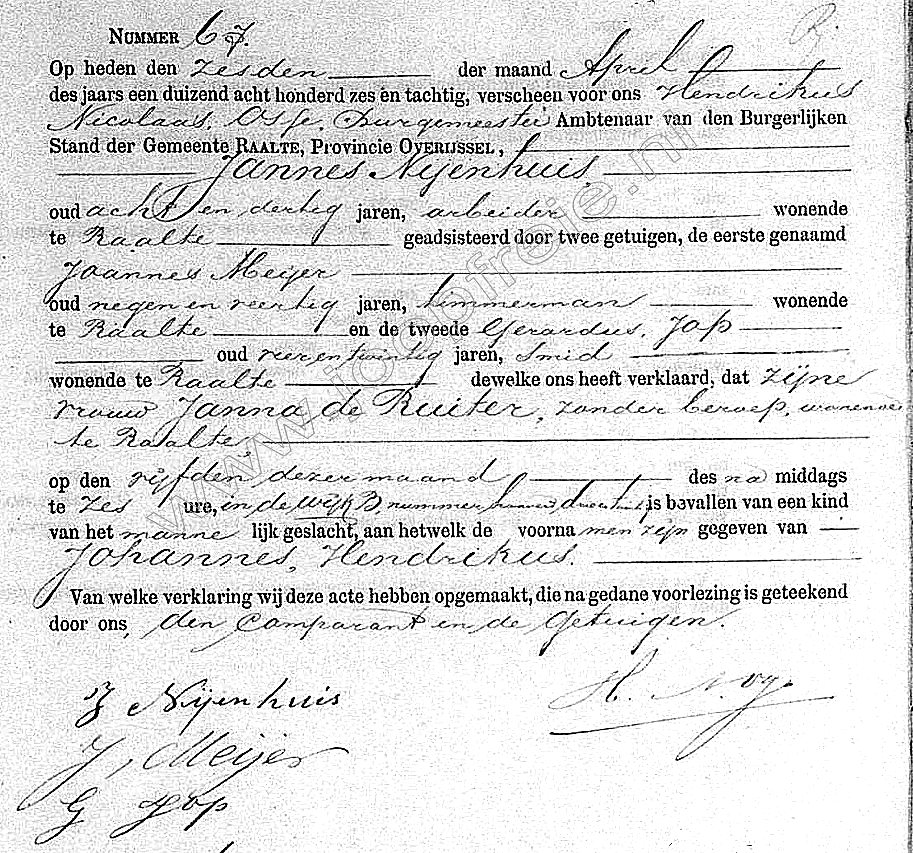 NUMMER 67.
Op heden den zesden der maand April
des jaars een duizend acht honderd zes en tachtig, verscheen voor ons Hendrikus
Nicolaas, Burgemeester Ambtenaar van den Burgerlijken
Stand der Gemeente RAALTE, Provincie OVERIJSSEL,
Jannes Nijenhuis,
oud acht en dertig jaren, arbeider wonende
te Raalte geadsisteerd door twee getuigen, de eerste genaamd
Joannes Meijer
oud negen en veertig jaren, timmerman wonende
te Raalte en de tweede Gerardus, Jop
oud vier en twintig jaren, Smid
wonende te Raalte dewelke ons heeft verklaard, dat zijne
vrouw Janna de Ruiter, zonder beroep, wonende
te Raalte,
op den vijfden dezer maand des na middags
te zes ure, in de wijk B, nummer is bevallen van een kind
van het manne lijk geslacht, aan hetwelk de voorna men zijn gegeven van
Johannes, Hendrikus.
Van welke verklaring wij deze acte hebben opgemaakt, die na gedane voorlezing is geteekend
door ons, den Comparant en de Getuigen.
J Nijenhuis
H. N.
J, Meijer
G Jop
www.joopfreije.nl